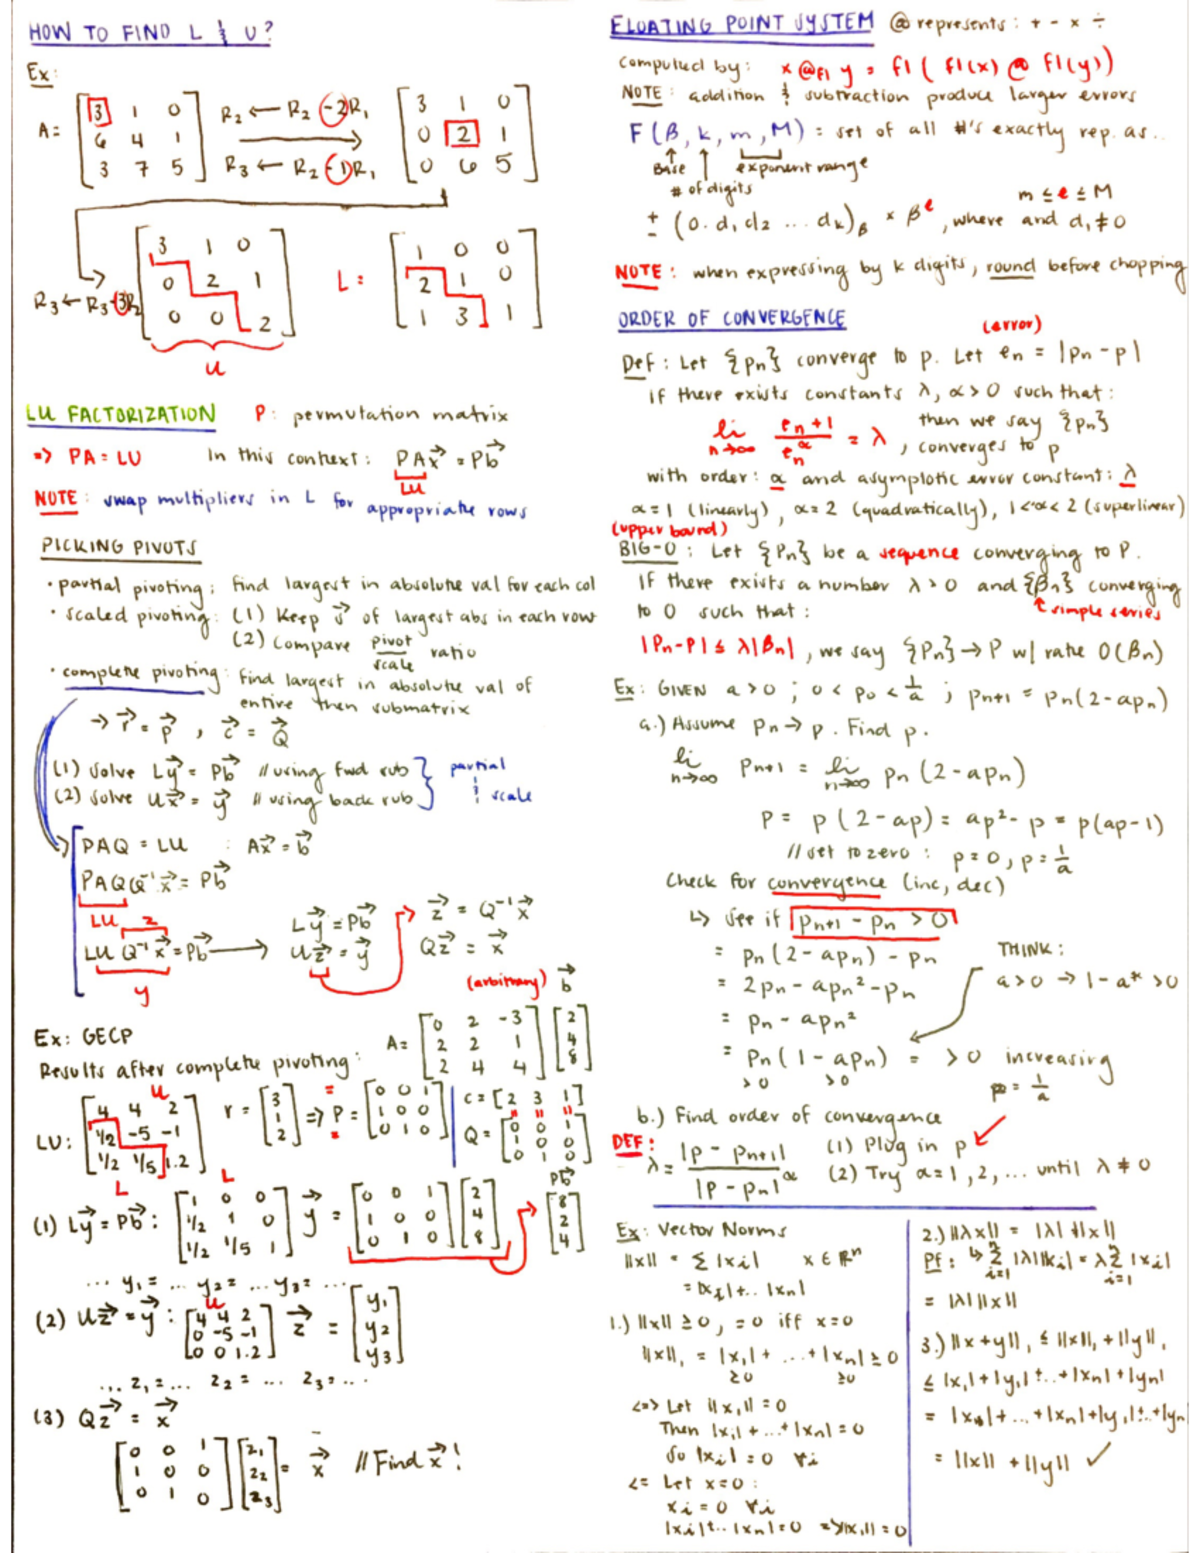 HOW TO FIND L & U?
Ex:
A = [3 1 0; 6 4 1; 3 7 5]
R₂ ← R₂ -2R₁
R₃ ← R₂ -1R₁
[3 1 0; 0 2 1; 0 6 5]
R₃ ← R₃ -3R₂
[3 1 0; 0 2 1; 0 0 2]
U
L = [1 0 0; 2 1 0; 1 3 1]
LU FACTORIZATION P: permutation matrix
=> PA = LU In this context: PAx⃗ = Pb⃗
LU
NOTE: swap multipliers in L for appropriate rows
PICKING PIVOTS
· partial pivoting: find largest in absolute val for each col
· scaled pivoting: (1) Keep s⃗ of largest abs in each row
(2) Compare pivot/scale ratio
· complete pivoting: find largest in absolute val of
entire then submatrix
→ r⃗ = p⃗, c⃗ = Q⃗
(1) solve Ly⃗ = Pb⃗ // using fwd sub
(2) solve Ux⃗ = y⃗ // using back sub
partial & scale
PAQ = LU : Ax⃗ = b⃗
PAQQ⁻¹x⃗ = Pb⃗
LU z
LU Q⁻¹x⃗ = Pb⃗ → Ly⃗ = Pb⃗
y
Uz⃗ = y⃗
z⃗ = Q⁻¹x⃗
Qz⃗ = x⃗
(arbitrary) b⃗
Ex: GECP
Results after complete pivoting:
A = [0 2 -3; 2 2 1; 2 4 4] [2; 4; 8]
U
LU: [4 4 2; 1/2 -5 -1; 1/2 1/5 1.2]
L
r = [3; 1; 2] => P = [0 0 1; 1 0 0; 0 1 0]
c = [2 3 1]
Q = [0 0 1; 1 0 0; 0 1 0]
L
(1) Ly⃗ = Pb⃗: [1 0 0; 1/2 1 0; 1/2 1/5 1] y⃗ = [0 0 1; 1 0 0; 0 1 0] [2; 4; 8]
Pb⃗
[8; 2; 4]
... y₁ = ... y₂ = ... y₃ = ...
(2) Uz⃗ = y⃗: [4 4 2; 0 -5 -1; 0 0 1.2] z⃗ = [y₁; y₂; y₃]
U
... z₁ = ... z₂ = ... z₃ = ...
(3) Qz⃗ = x⃗
[0 0 1; 1 0 0; 0 1 0] [z₁; z₂; z₃] = x⃗ // Find x⃗!
FLOATING POINT SYSTEM @ represents: + - × ÷
computed by: x @fl y = fl( fl(x) @ fl(y))
NOTE: addition & subtraction produce larger errors
F(β, k, m, M) = set of all #'s exactly rep. as..
Base
# of digits
exponent range
m ≤ e ≤ M
± (0.d₁d₂ ... dₖ)β × βᵉ, where and d₁ ≠ 0
NOTE: when expressing by k digits, round before chopping
ORDER OF CONVERGENCE
(error)
Def: Let {pn} converge to p. Let en = |pn - p|
if there exists constants λ, α > 0 such that:
lim n→∞ en+1/en^α = λ, then we say {pn} converges to p
with order: α and asymptotic error constant: λ
α=1 (linearly), α=2 (quadratically), 1<α<2 (superlinear)
(upper bound)
BIG-O: Let {Pn} be a sequence converging to P.
If there exists a number λ > 0 and {βn} converging
↑ simple series
to 0 such that:
|Pn-P| ≤ λ|βn|, we say {Pn} → P w/ rate O(βn)
Ex: GIVEN a > 0 ; 0 < p₀ < 1/a ; pn+1 = pn(2-apn)
a.) Assume pn → p. Find p.
lim n→∞ pn+1 = lim n→∞ pn(2-apn)
p = p(2-ap) = ap²-p = p(ap-1)
// set to zero: p=0, p=1/a
Check for convergence (inc, dec)
↳ see if pn+1 - pn > 0
= pn(2-apn) - pn
= 2pn - apn² - pn
= pn - apn²
= pn(1-apn) = > 0 increasing
>0 >0
p = 1/a
THINK:
a>0 → 1-a* > 0
b.) Find order of convergence
DEF: λ = |p - pn+1| / |p - pn|^α
(1) Plug in p
(2) Try α=1,2,... until λ ≠ 0
Ex: Vector Norms
||x|| = Σ|xi| x ∈ ℝⁿ
= |x₁|+..|xn|
1.) ||x|| ≥ 0, = 0 iff x=0
||x||₁ = |x₁| + ... + |xn| ≥ 0
≥0 ≥0
<=> Let ||x₁|| = 0
Then |xi| + ... + |xn| = 0
So |xi| = 0 ∀i
<= Let x=0:
xi = 0 ∀i
|xi|+..|xn| = 0 => ||x₁|| = 0
2.) ||λx|| = |λ| ||x||
Pf: ↳ Σⁿi=1 |λ||xi| = λ Σⁿi=1 |xi|
= |λ| ||x||
3.) ||x+y||₁ ≤ ||x||₁ + ||y||₁
≤ |x₁|+|y₁|+..+|xn|+|yn|
= |xn|+...+|xn|+|y₁|+..+|yn|
= ||x|| + ||y|| ✓